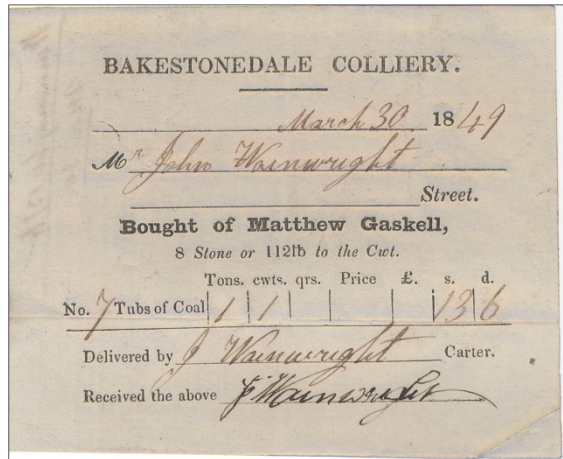 BAKESTONEDALE COLLIERY.
March 30 1849
Mr John Wainwright
Street.
Bought of Matthew Gaskell,
8 Stone or 112lb to the Cwt.
Tons. cwts. qrs. Price £. s. d.
No. 7 Tubs of Coal 1 1 13 6
Delivered by J Wainwright Carter.
Received the above J Wainwright